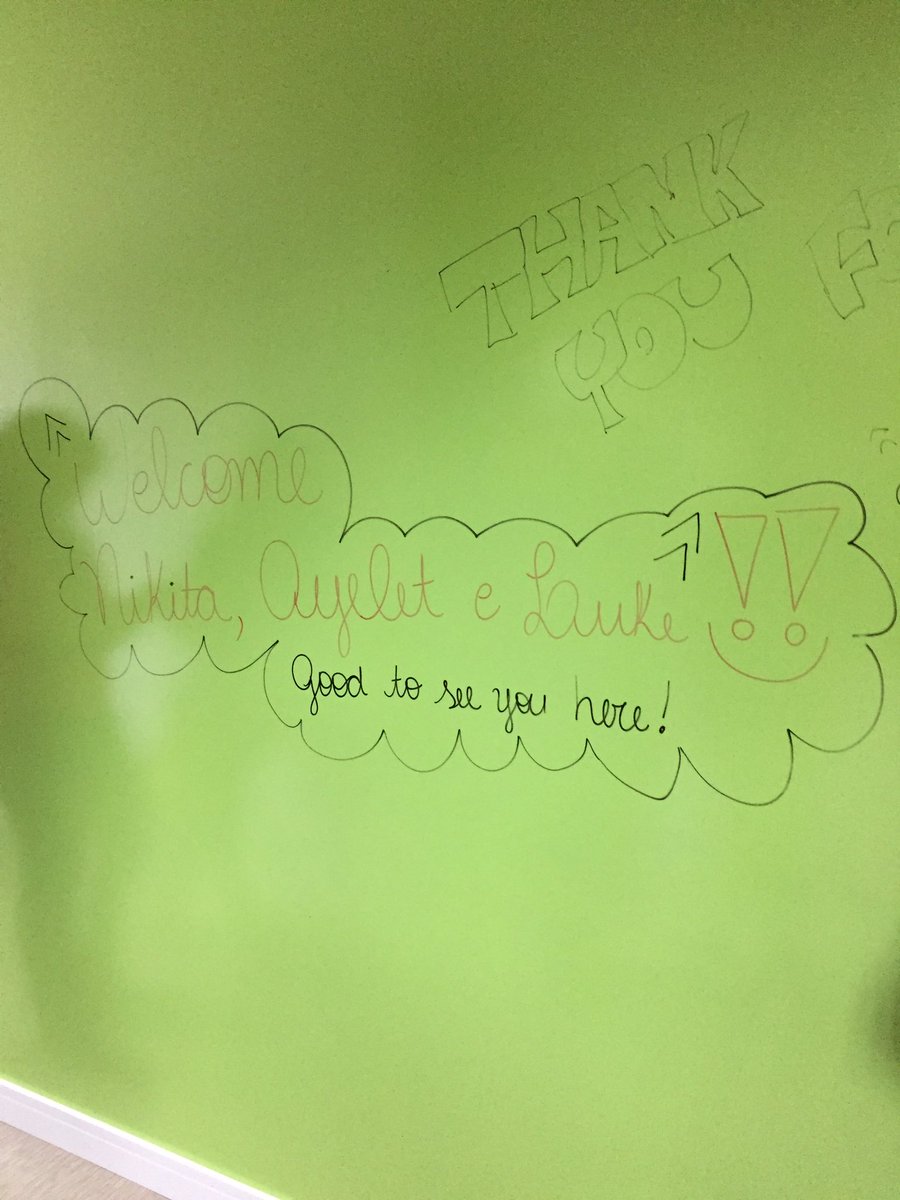 THANK
YOU
Welcome
Nikita, Ayelet e Luke !!
Good to see you here!